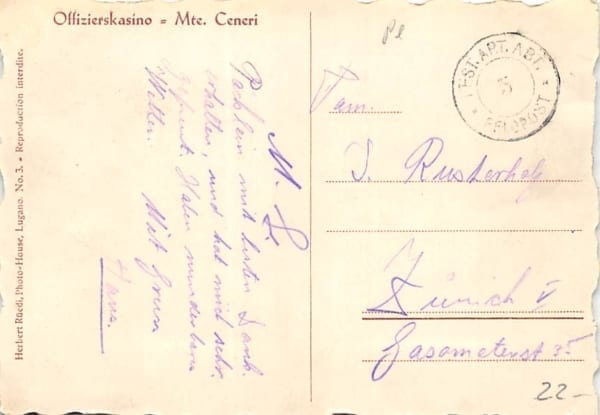 Offizierskasino = Mte. Ceneri
Herbert Rüedi, Photo-House, Lugano. No. 3. = Reproduction interdite.
M. L.
Päcklein mit besten Dank
erhalten, und hat mich sehr
gefreut. Haben wunderbares
Wetter. Mit Gruss
Hans.
FEST. ART. ABT.
FELDPOST
Fam.
J. Rusterholz
Zürich V
Gasometerst 35
22-